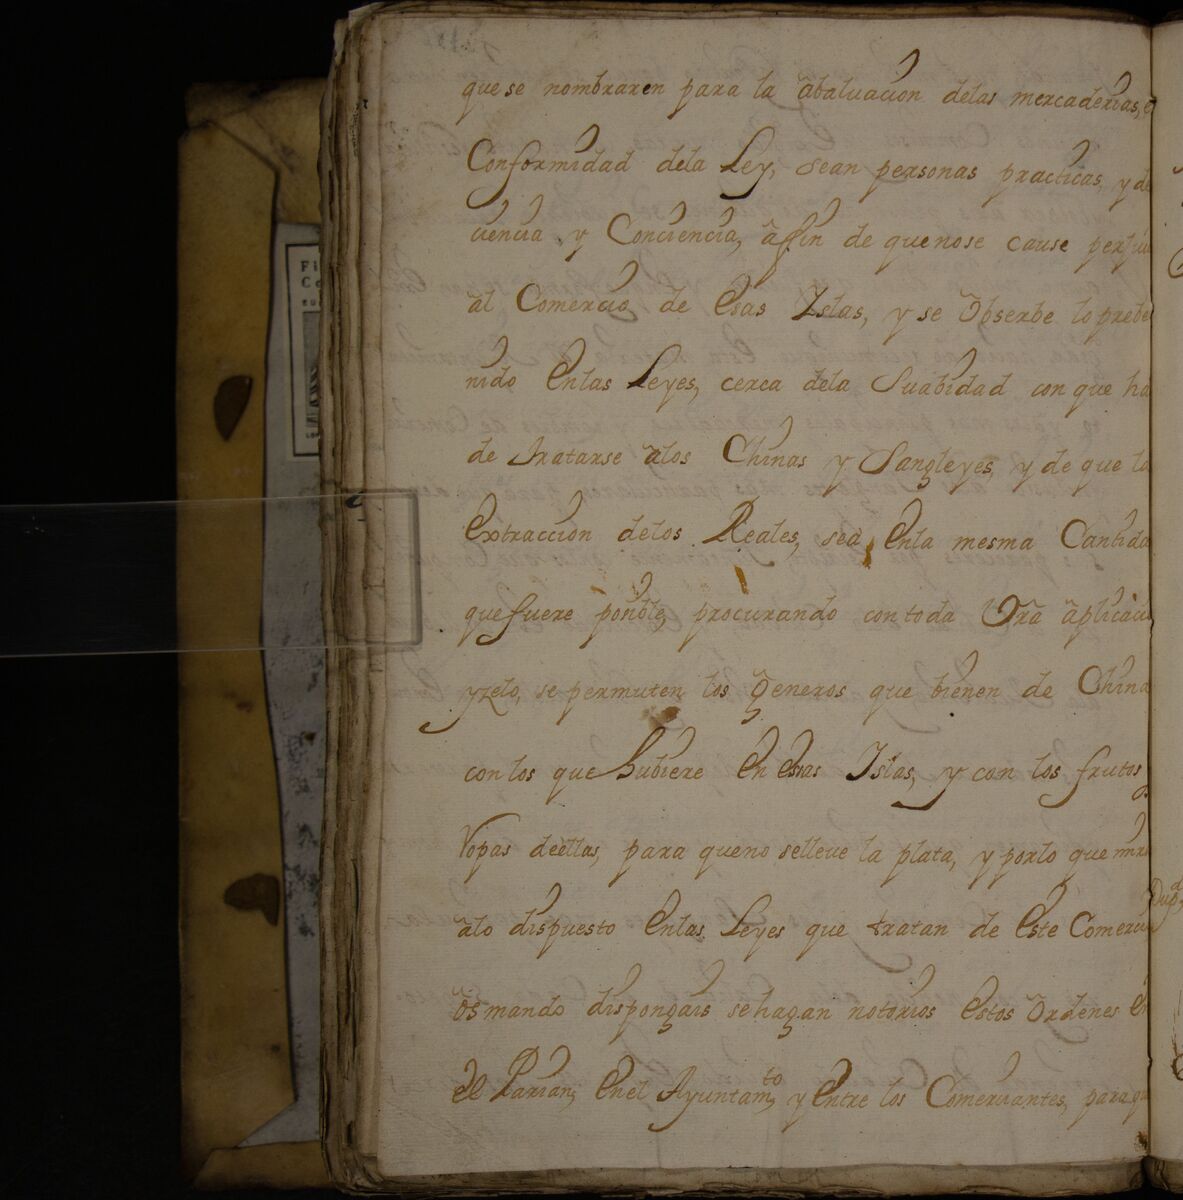 que se nombraren para la ãbaluacion delas mercaderias, e
Conformidad dela Ley, sean personas practicas, y de
ciencia y Conciencia, ã fin de quenose cause perjui
ãl Comercio de esas Islas, y se õbserbe lo prebe
nido enlas Leyes, cerca dela Suabidad con que ha
de tratarse ãlos Chinas y Sangleyes, y de que la
extraccion delos Reales, sea enla mesma Cantida
que fuere posible, procurando con toda Vra ãplicaci
yzelo, se permuten los generos que bienen de China
con los que hubiere en esas Islas, y con los frutos,
ropas deellas, para queno selleve la plata, y porlo que mira
ãlo dispuesto enlas Leyes que tratan de este Comerci
õs mando dispongais se hagan notorios estos õrdenes en
el Parian, enel Ayuntamto, y entre los Comerciantes, para qu
Dupdo
Fi
Co